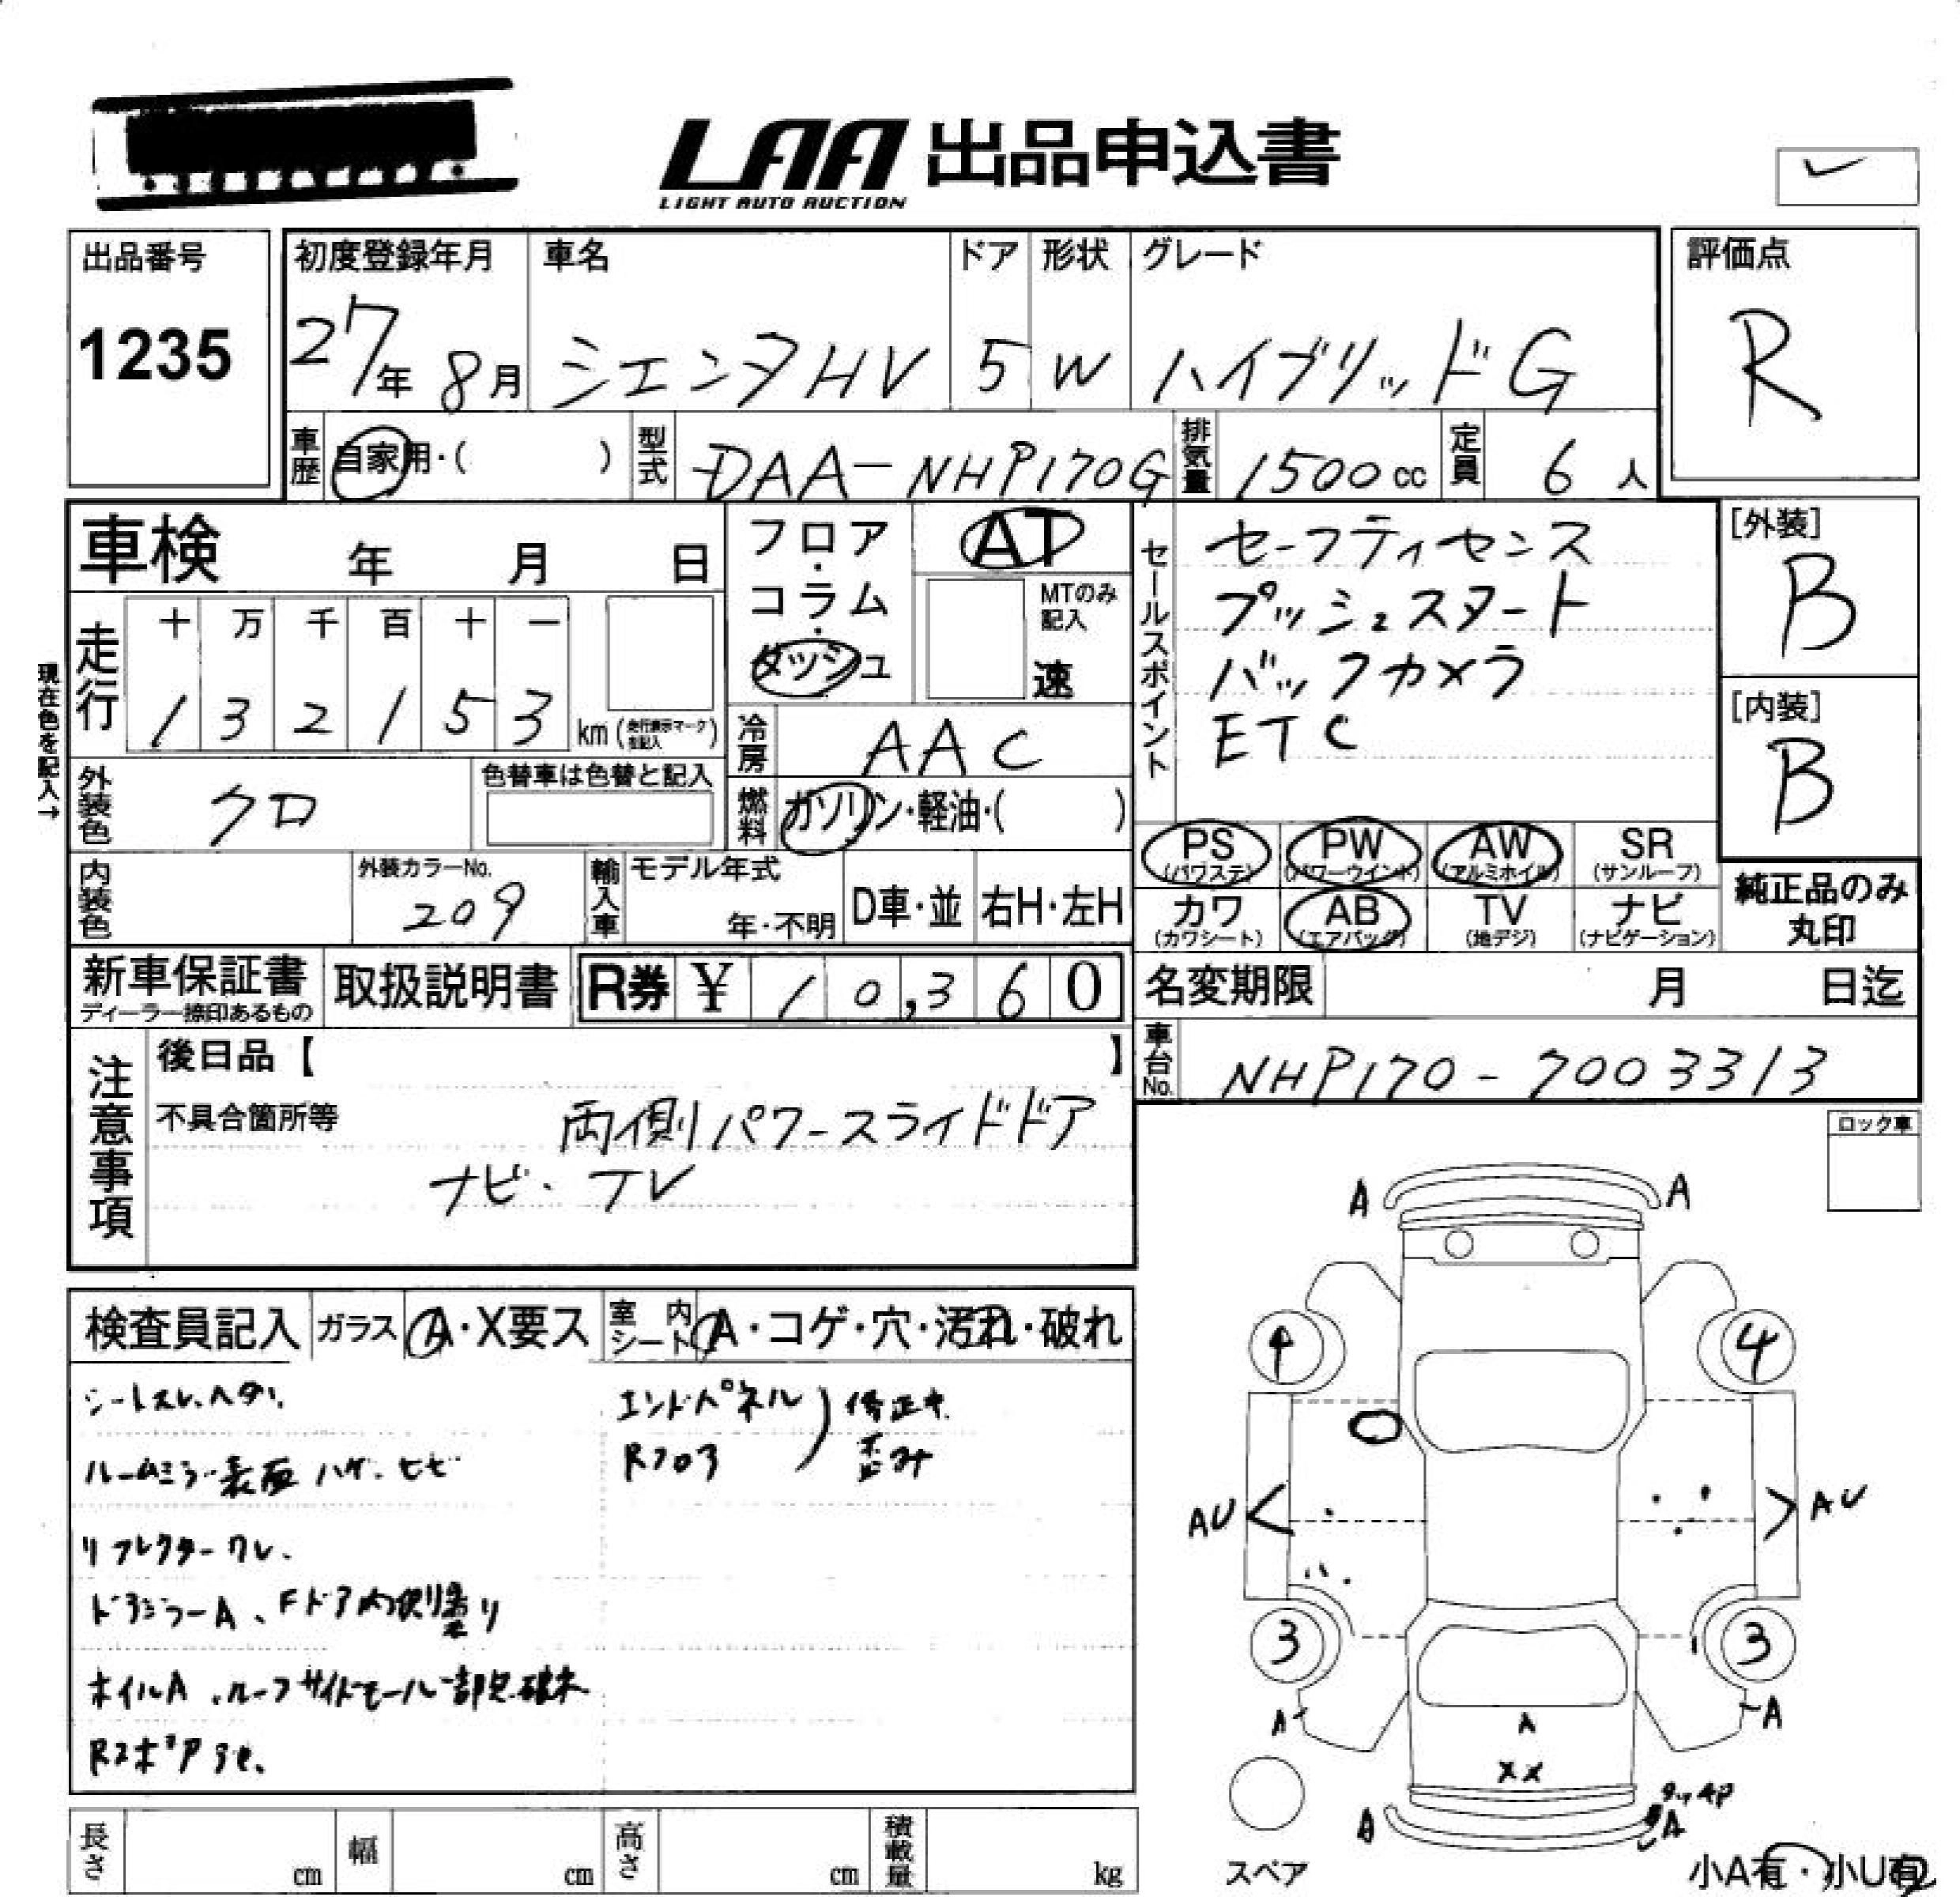 LAA 出品申込書
LIGHT AUTO AUCTION
出品番号
1235
初度登録年月
27年 8月
車名
シエンタHV
ドア
5
形状
W
グレード
ハイブリッドG
評価点
R
車歴
自家用・( )
型式
DAA-NHP170G
排気量
1500cc
定員
6人
車検 年 月 日
フロア・コラム・ダッシュ
AT
MTのみ記入
速
セールスポイント
セーフティセンス
プッシュスタート
バックカメラ
ETC
[外装]
B
[内装]
B
現在色を記入→
走行
十 万 千 百 十 一
1 3 2 1 5 3 km
冷房
AAC
外装色
クロ
色替車は色替と記入
燃料
ガソリン・軽油・( )
PS (パワステ)
PW (パワーウインド)
AW (アルミホイル)
SR (サンルーフ)
カワ (カワシート)
AB (エアバッグ)
TV (地デジ)
ナビ (ナビゲーション)
純正品のみ丸印
内装色
外装カラーNo.
209
輸入車
モデル年式
年・不明
D車・並
右H・左H
新車保証書
ディーラー捺印あるもの
取扱説明書
R券 ¥ 10,360
名変期限 月 日迄
車台No.
NHP170-7003313
注意事項
後日品【 】
不具合箇所等
両側パワースライドドア
ナビ・TV
ロック車
検査員記入
ガラス A・X要ス
室内シート A・コゲ・穴・汚れ・破れ
シートスレ、ヘタリ
ルームミラー表面ハゲ、ヒビ
リフレクターワレ
ドアミラーA、Fドア内側塗り
ホイルA、ルーフサイドモール一部欠、破れ
エンドパネル
Rフロア
修正キ
歪み
A A
4 4
AU AU
3 3
A A
A
XX
A A
スペア
小A有・小U有
長さ cm
幅 cm
高さ cm
積載量 kg